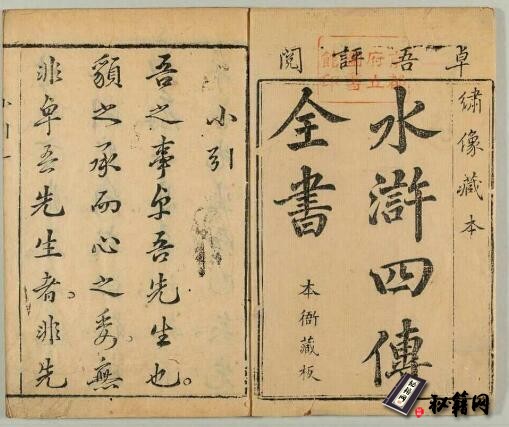 卓吾評閱
繡像藏本
水滸四傳
全書
本衙藏板
小引
吾之事卓吾先生也。
貌之承而心之委。無
非卓吾先生者。非先
小引
秘籍网